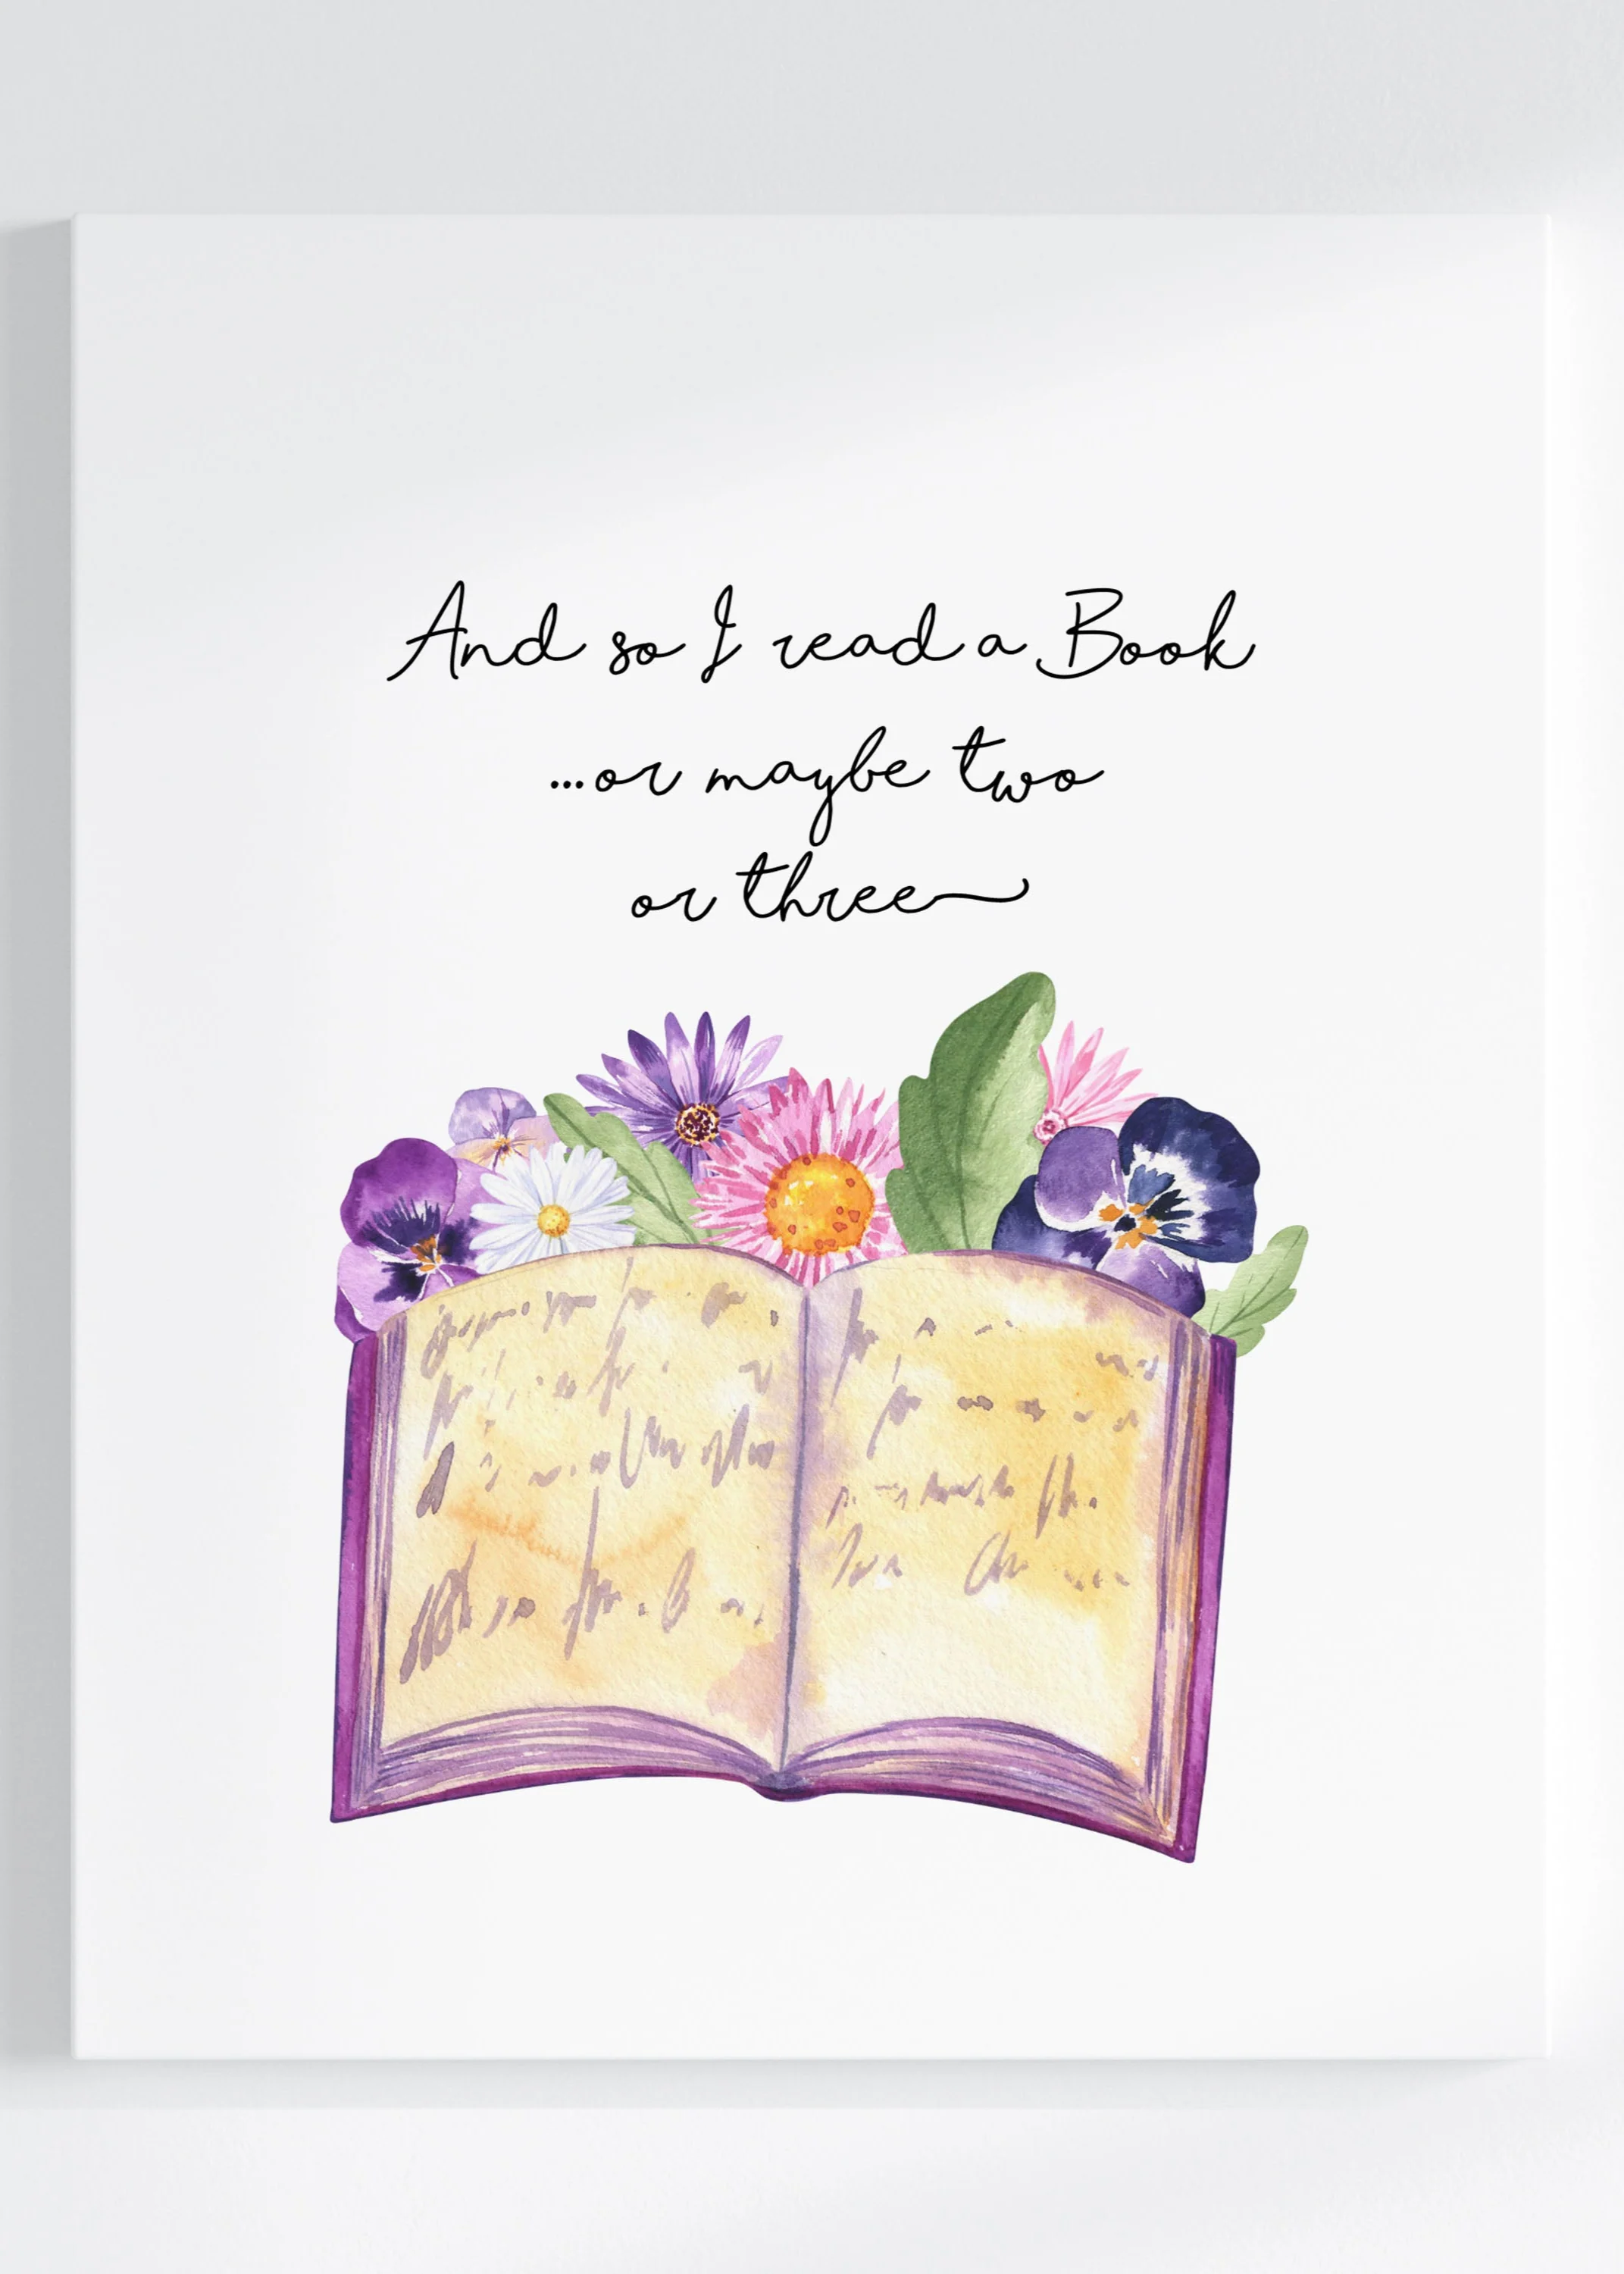 And so I read a Book
...or maybe two
or three